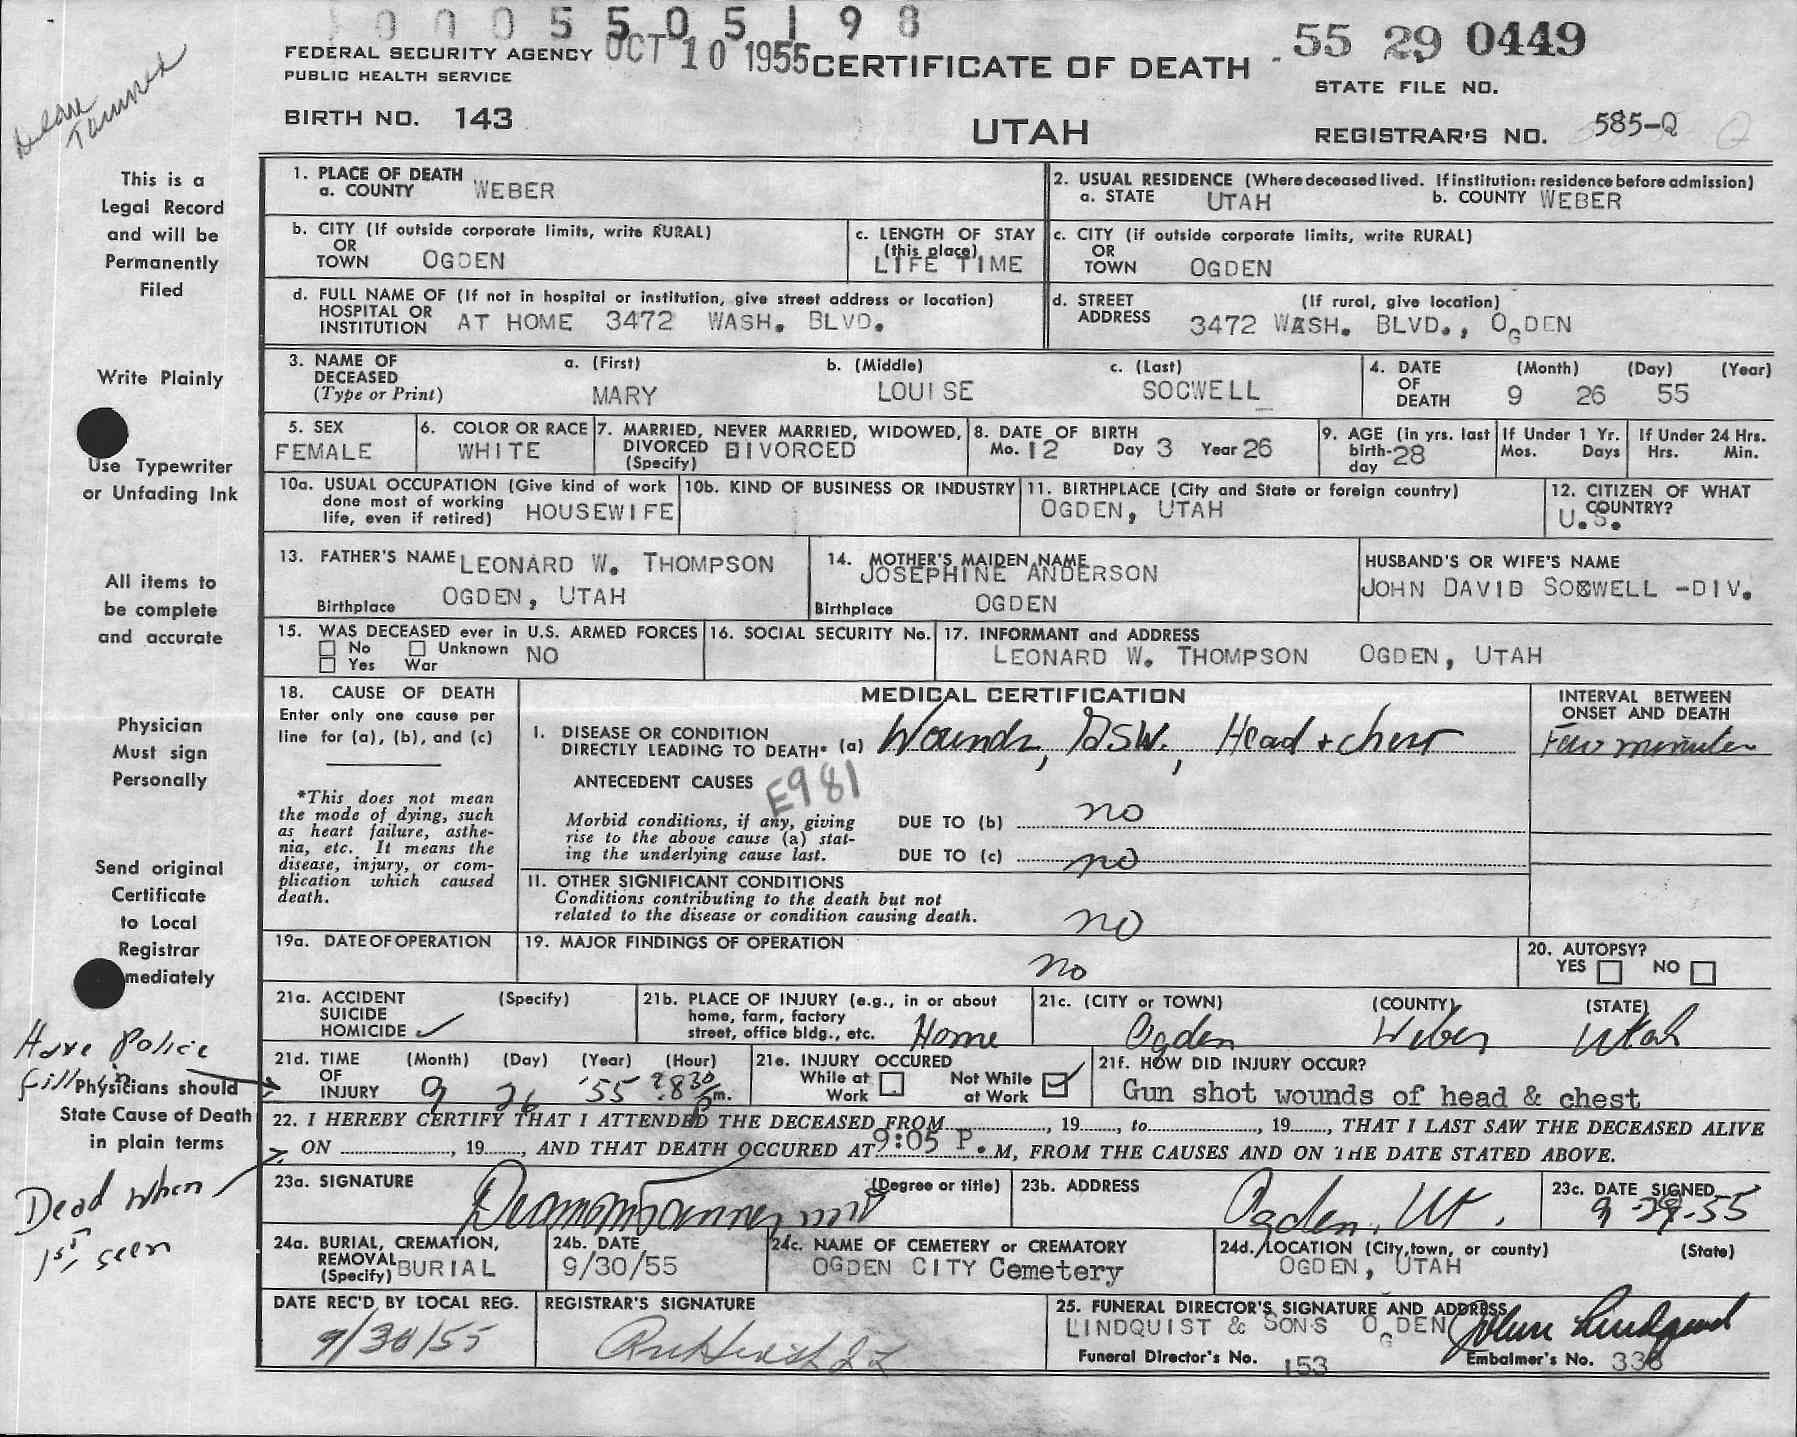 0005505198
OCT 10 1955
55 29 0449
FEDERAL SECURITY AGENCY
PUBLIC HEALTH SERVICE
CERTIFICATE OF DEATH
STATE FILE NO.
BIRTH NO. 143
UTAH
REGISTRAR'S NO. 585-Q
Tanner
This is a
Legal Record
and will be
Permanently
Filed
Write Plainly
Use Typewriter
or Unfading Ink
All items to
be complete
and accurate
Physician
Must sign
Personally
Send original
Certificate
to Local
Registrar
mediately
Have Police
fill in
Physicians should
State Cause of Death
in plain terms
Dead when
1st seen
1. PLACE OF DEATH
a. COUNTY WEBER
2. USUAL RESIDENCE (Where deceased lived. If institution: residence before admission)
a. STATE UTAH b. COUNTY WEBER
b. CITY (If outside corporate limits, write RURAL)
OR
TOWN OGDEN
c. LENGTH OF STAY
(this place)
LIFE TIME
c. CITY (if outside corporate limits, write RURAL)
OR
TOWN OGDEN
d. FULL NAME OF (If not in hospital or institution, give street address or location)
HOSPITAL OR
INSTITUTION AT HOME 3472 WASH. BLVD.
d. STREET (If rural, give location)
ADDRESS 3472 WASH. BLVD., OGDEN
3. NAME OF DECEASED (Type or Print)
a. (First) MARY
b. (Middle) LOUISE
c. (Last) SOCWELL
4. DATE OF DEATH (Month) (Day) (Year)
9 26 55
5. SEX
FEMALE
6. COLOR OR RACE
WHITE
7. MARRIED, NEVER MARRIED, WIDOWED,
DIVORCED (Specify) DIVORCED
8. DATE OF BIRTH
Mo. 12 Day 3 Year 26
9. AGE (in yrs. last
birth-
day 28
If Under 1 Yr.
Mos. Days
If Under 24 Hrs.
Hrs. Min.
10a. USUAL OCCUPATION (Give kind of work
done most of working
life, even if retired) HOUSEWIFE
10b. KIND OF BUSINESS OR INDUSTRY
11. BIRTHPLACE (City and State or foreign country)
OGDEN, UTAH
12. CITIZEN OF WHAT
COUNTRY?
U.S.
13. FATHER'S NAME LEONARD W. THOMPSON
Birthplace OGDEN, UTAH
14. MOTHER'S MAIDEN NAME
JOSEPHINE ANDERSON
Birthplace OGDEN
HUSBAND'S OR WIFE'S NAME
JOHN DAVID SOCWELL -DIV.
15. WAS DECEASED ever in U.S. ARMED FORCES
No Unknown NO
Yes War
16. SOCIAL SECURITY No.
17. INFORMANT and ADDRESS
LEONARD W. THOMPSON OGDEN, UTAH
18. CAUSE OF DEATH
Enter only one cause per
line for (a), (b), and (c)
*This does not mean
the mode of dying, such
as heart failure, asthe-
nia, etc. It means the
disease, injury, or com-
plication which caused
death.
MEDICAL CERTIFICATION
I. DISEASE OR CONDITION
DIRECTLY LEADING TO DEATH* (a) Wounds, GSW, Head + chest
INTERVAL BETWEEN
ONSET AND DEATH
Few minutes
ANTECEDENT CAUSES
E981
Morbid conditions, if any, giving
rise to the above cause (a) stat-
ing the underlying cause last.
DUE TO (b) no
DUE TO (c) no
II. OTHER SIGNIFICANT CONDITIONS
Conditions contributing to the death but not
related to the disease or condition causing death.
no
19a. DATE OF OPERATION
19. MAJOR FINDINGS OF OPERATION
no
20. AUTOPSY?
YES NO
21a. ACCIDENT (Specify)
SUICIDE
HOMICIDE ✓
21b. PLACE OF INJURY (e.g., in or about
home, farm, factory
street, office bldg., etc. Home
21c. (CITY or TOWN) (COUNTY) (STATE)
Ogden Weber Utah
21d. TIME (Month) (Day) (Year) (Hour)
OF
INJURY 9 26 '55 8:30 p m.
21e. INJURY OCCURED
While at Work
Not While at Work ✓
21f. HOW DID INJURY OCCUR?
Gun shot wounds of head & chest
22. I HEREBY CERTIFY THAT I ATTENDED THE DECEASED FROM , 19 , to , 19 , THAT I LAST SAW THE DECEASED ALIVE
ON , 19 , AND THAT DEATH OCCURED AT 9:05 P. M, FROM THE CAUSES AND ON THE DATE STATED ABOVE.
23a. SIGNATURE (Degree or title)
Tanner MD
23b. ADDRESS
Ogden, Ut.
23c. DATE SIGNED
9-29-55
24a. BURIAL, CREMATION,
REMOVAL
(Specify) BURIAL
24b. DATE
9/30/55
24c. NAME OF CEMETERY or CREMATORY
OGDEN CITY Cemetery
24d. LOCATION (City, town, or county) (State)
OGDEN, UTAH
DATE REC'D BY LOCAL REG.
9/30/55
REGISTRAR'S SIGNATURE
25. FUNERAL DIRECTOR'S SIGNATURE AND ADDRESS
LINDQUIST & SONS OGDEN John Lindquist
Funeral Director's No. 153
Embalmer's No. 336